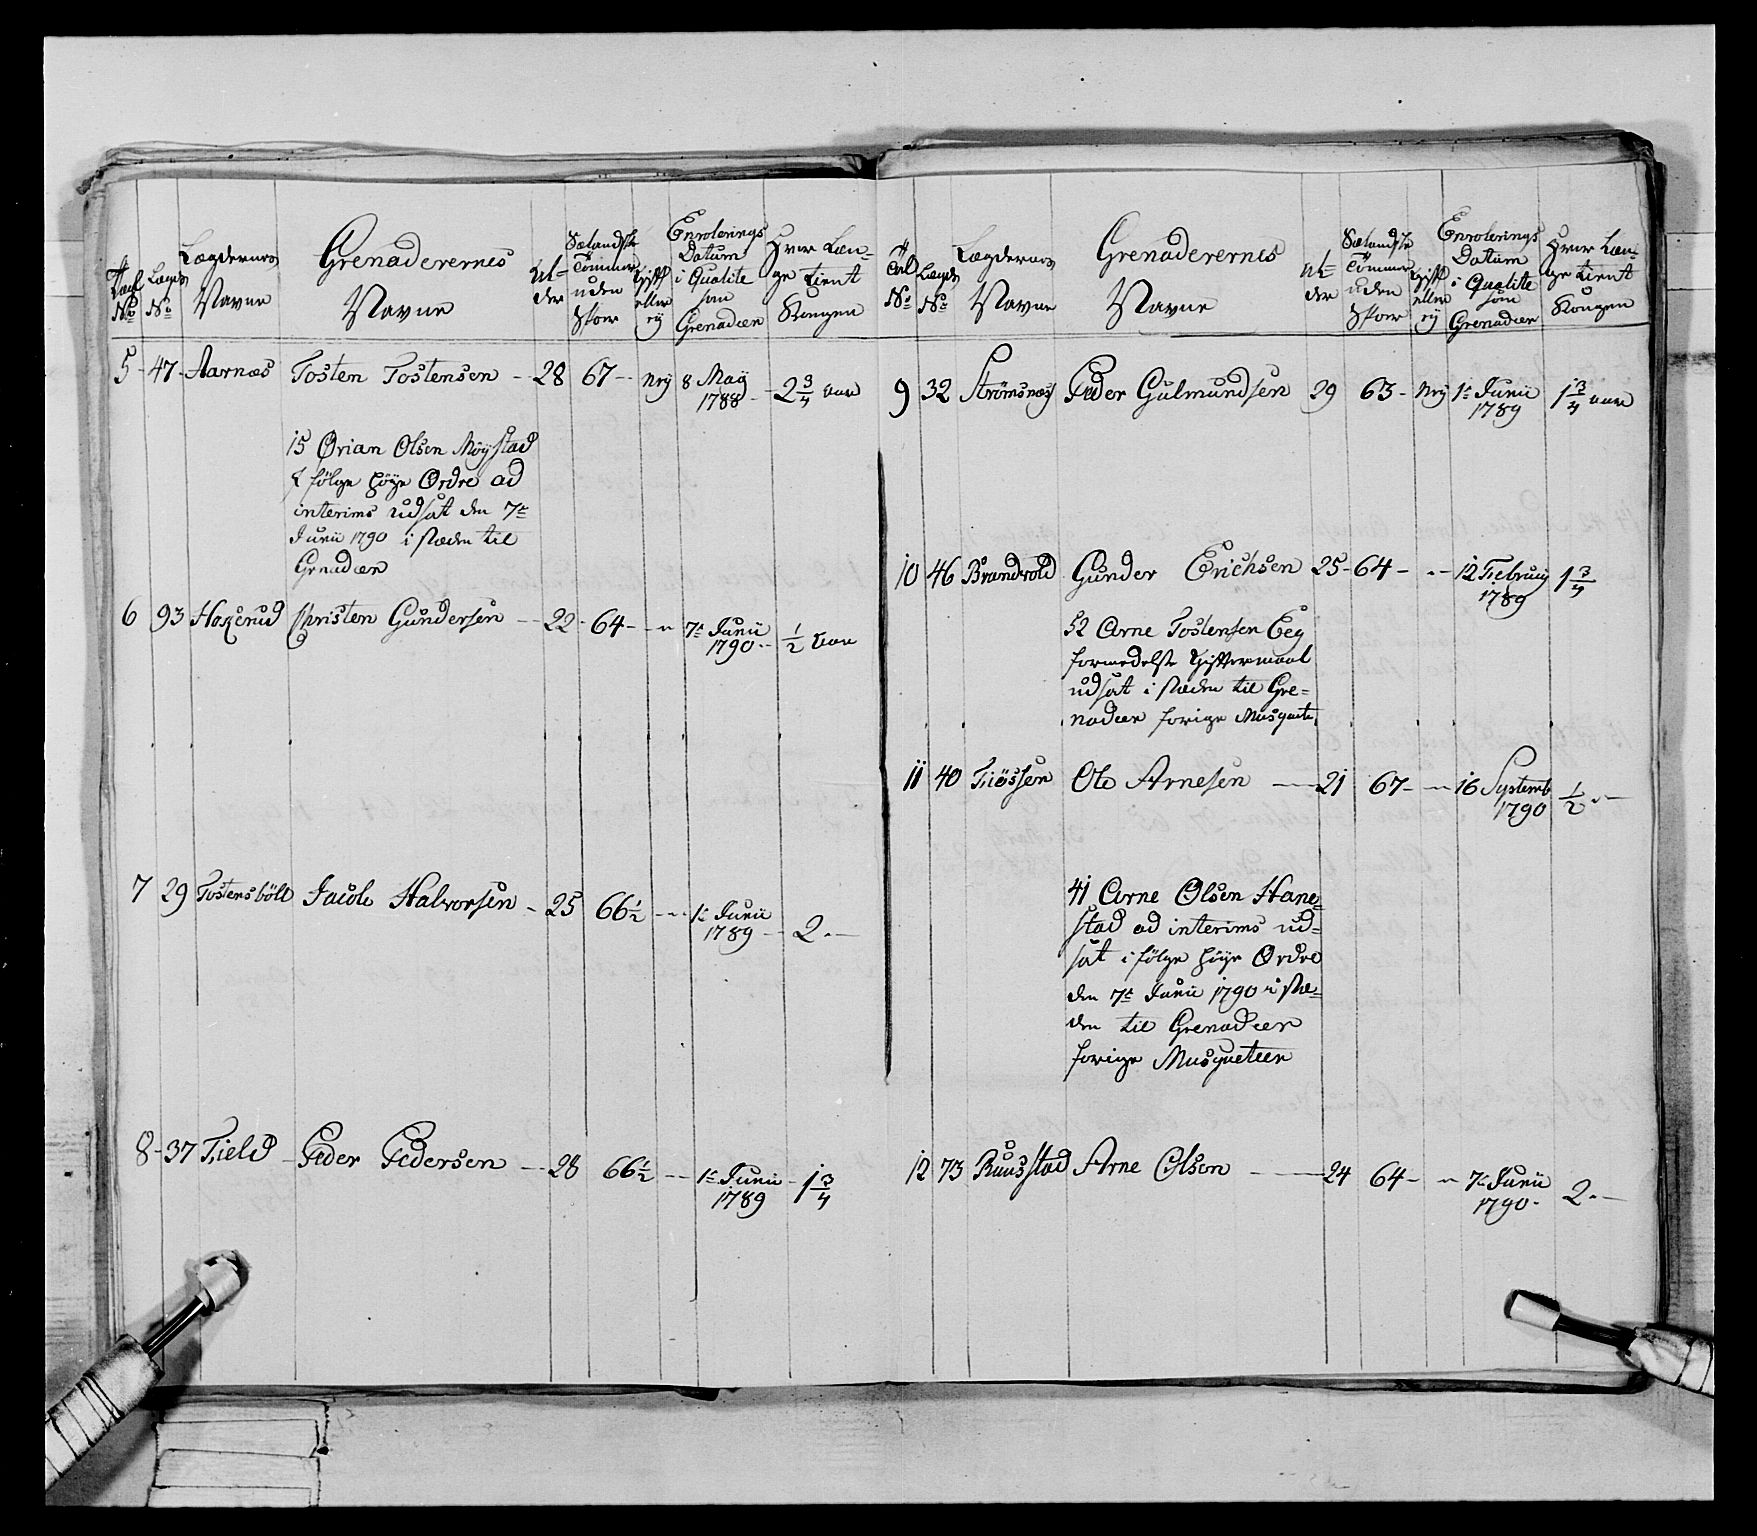 Tæl No
Lægds No
Lægdernes Navne
Grenaderernes Navne
Al=
der
Sælandske
Tommer
uden
Skoer
Gift
eller
ey
Enrolerings
Datum
i Qualite
som
Grenadeer
Hvor Læn=
ge tient
Kongen
5 - 47 - Aarnæs Tosten Tostensen - 28 67 - Nej 8 May 1788 - 2 3/4 aar
15 Ørian Olsen Møystad
følge høye Ordre ad
interims udsat den 7de
Junii 1790 i stæden til
Grenadeer
6 93 Haskerud Christen Gundersen - 22 - 64 - - " 7de Junii 1790 - 1/2 aar
7 29 Tostensböll Jacob Halvorsen - 25 66 1/2 - - 1te Junii 1789 - 2 . -
8 - 37 Field - Peder Pedersen - 28 66 1/2 - - 1te Junii 1789 - 1 3/4
Tæl No
Lægds No
Lægdernes Navne
Grenaderernes Navne
Al=
der
Sælandske
Tommer
uden
Skoer
Gift
eller
ey
Enrolerings
Datum
i Qualite
som
Grenadeer
Hvor Læn=
ge tient
Kongen
9 32 Strømsnæs Peder Gulmundsen 29 63 - Nej 1te Junii 1789 1 3/4 aar
10 46 Brandvold Gunder Erichsen 25 - 64 - - - 12 Februarij 1789 1 3/4
52 Arne Tostensen Eeg
formedelst Giftermaal
udsat i stæden til Gre=
nadeer forige Musquete
11 40 Tiøssen Ole Arnesen - 21 67 - - 16 Septemb 1790 1/2 . -
41 Arne Olsen Hane=
stad ad interims ud=
sat i følge høye Ordre
den 7de Junii 1790 i stæ=
den til Grenadeer
forige Musqueteer
12 73 Ruusstad Arne Olsen - 24 64 - " 7de Junii 1790 - 2 . -